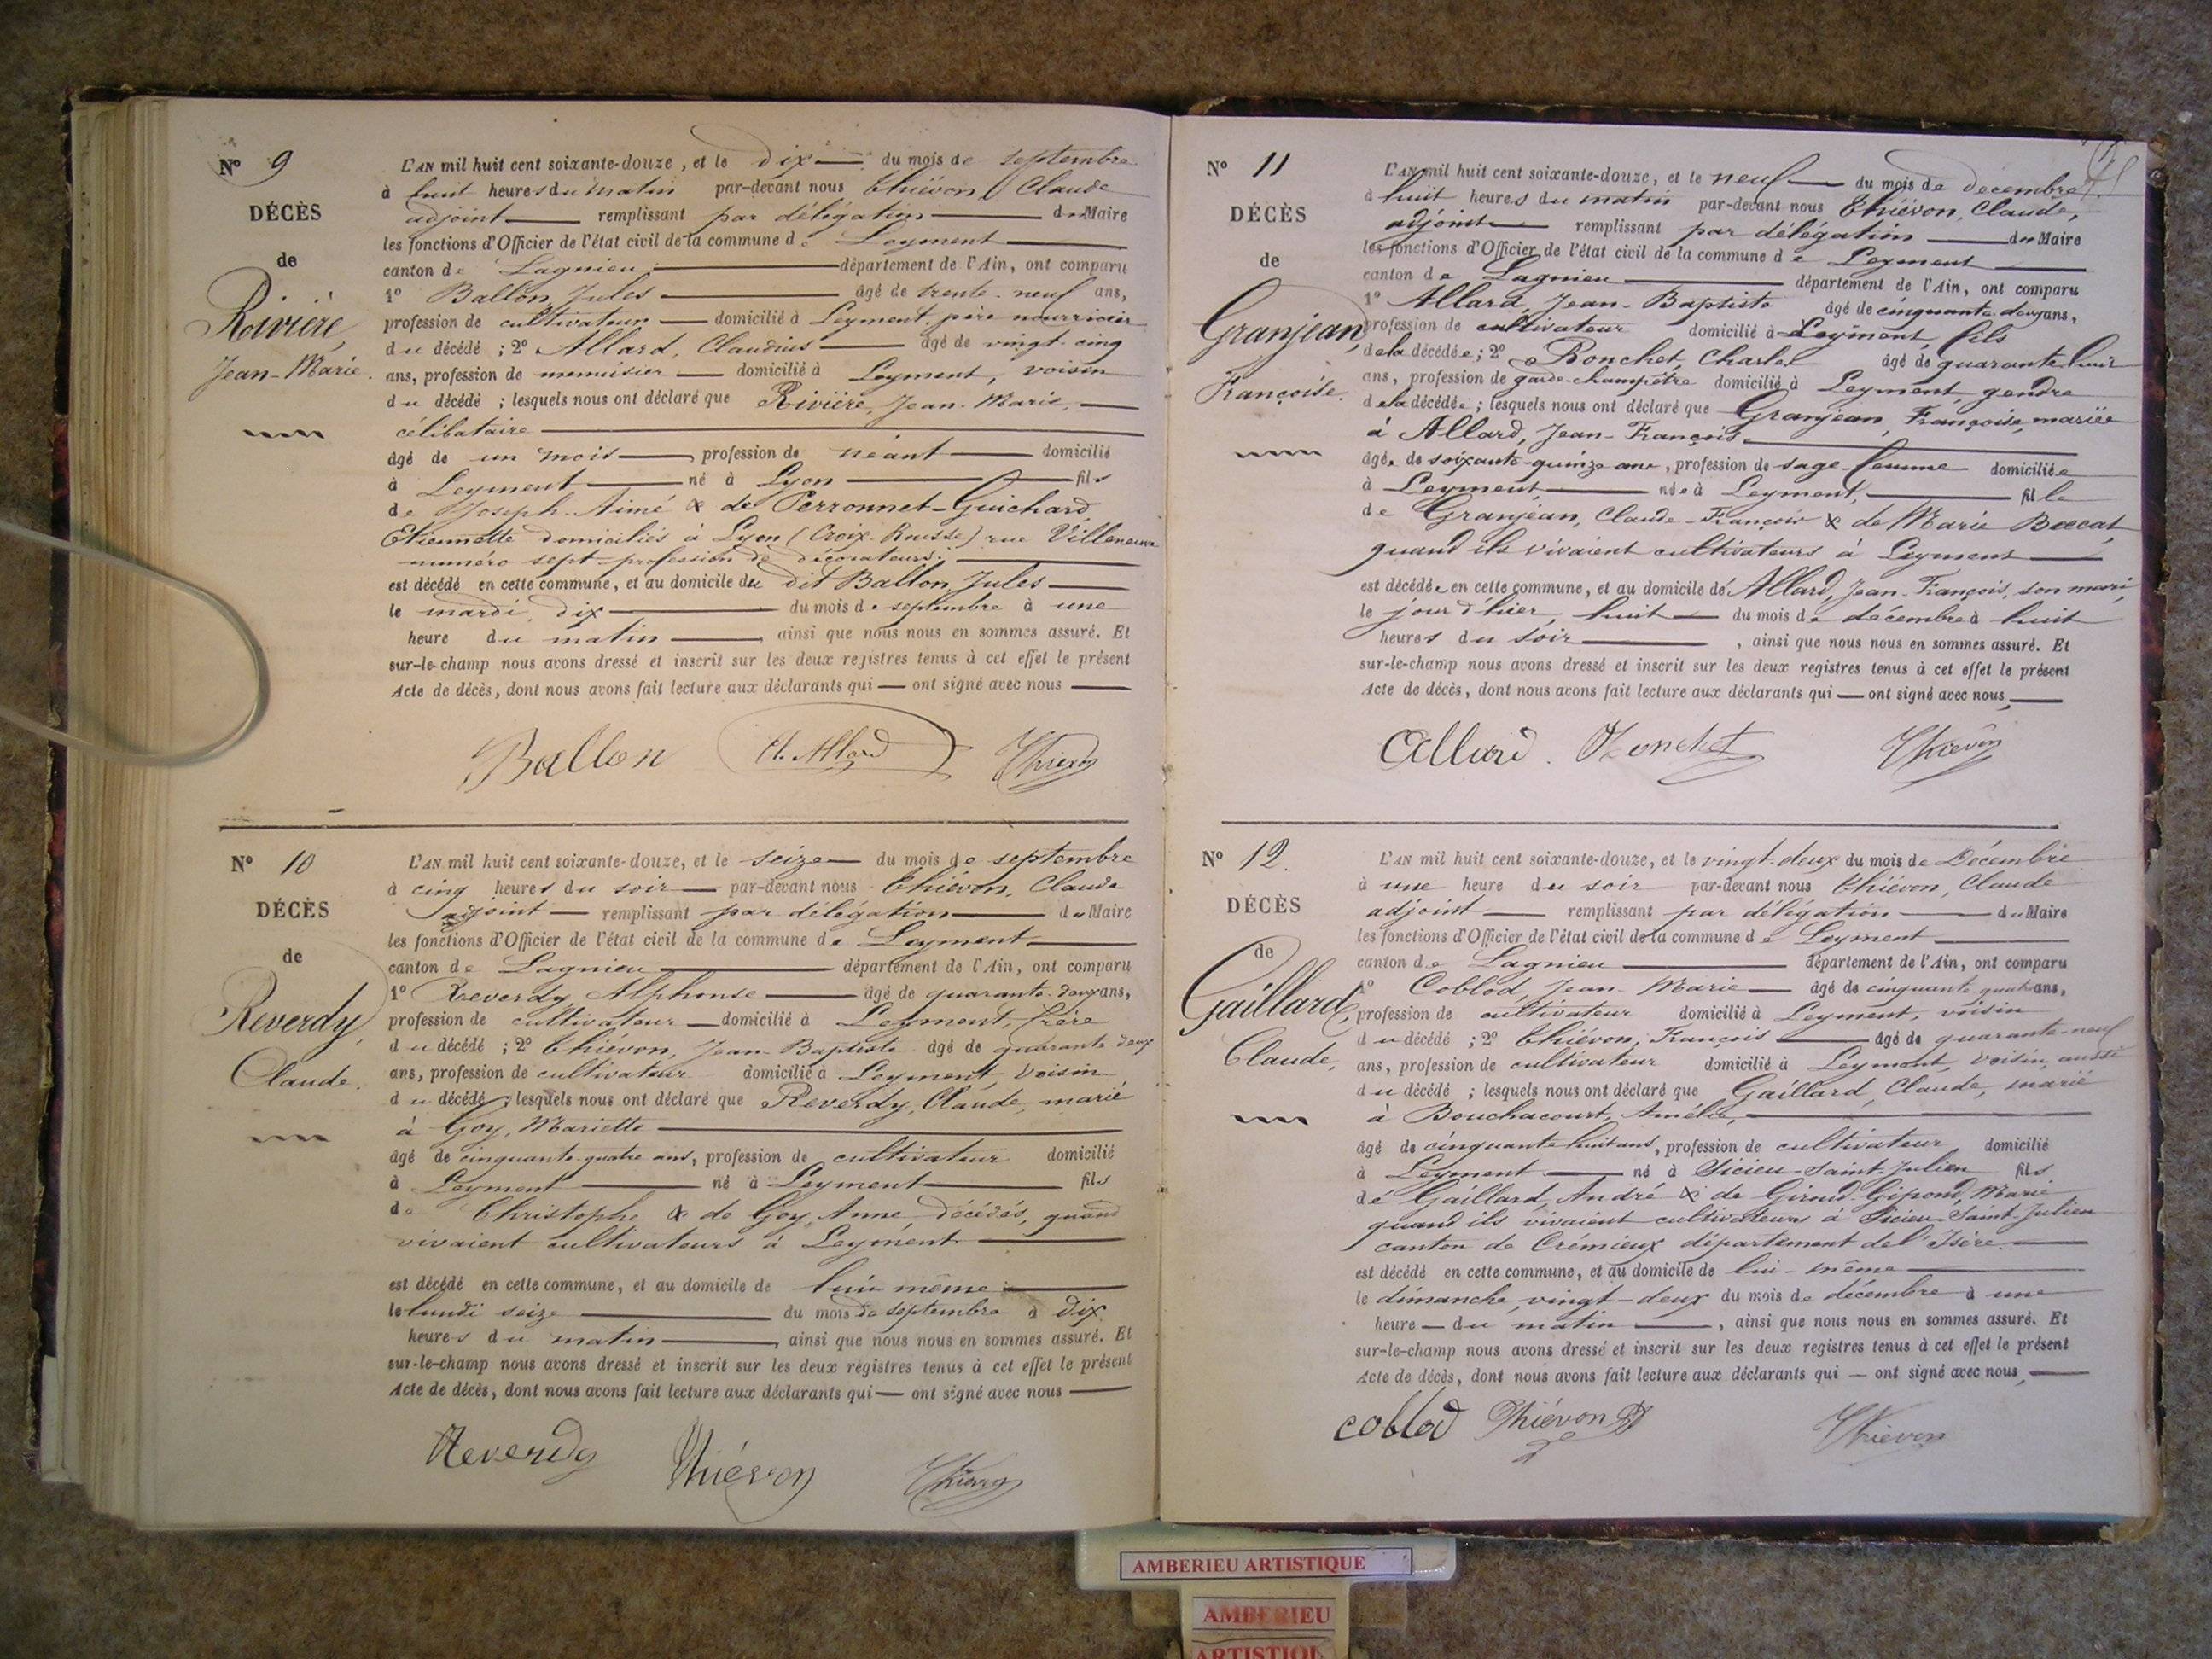 N° 9
DÉCÈS
de
Rivière,
Jean-Marie.
L'AN mil huit cent soixante-douze, et le dix du mois de septembre
à huit heures du matin par-devant nous Thiévon, Claude
adjoint remplissant par délégation du Maire
les fonctions d'Officier de l'état civil de la commune de Leyment
canton de Lagnieu département de l'Ain, ont comparu
1° Ballon, Jules âgé de trente-neuf ans,
profession de cultivateur domicilié à Leyment, père nourricier
du décédé ; 2° Allard, Claudius âgé de vingt-cinq
ans, profession de menuisier domicilié à Leyment, voisin
du décédé ; lesquels nous ont déclaré que Rivière, Jean-Marie,
célibataire
âgé de un mois, profession de néant domicilié
à Leyment né à Lyon fils
de Joseph-Aimé & de Perronnet-Guichard
Etiennette domiciliés à Lyon (Croix-Rousse) rue Villeneuve
numéro sept profession de
est décédé en cette commune, et au domicile du dit Ballon, Jules
le mardi, dix du mois de septembre à une
heure du matin, ainsi que nous nous en sommes assuré. Et
sur-le-champ nous avons dressé et inscrit sur les deux registres tenus à cet effet le présent
Acte de décès, dont nous avons fait lecture aux déclarants qui — ont signé avec nous
Ballon Cl. Allard Thiévon
N° 10
DÉCÈS
de
Reverdy,
Claude.
L'AN mil huit cent soixante-douze, et le seize du mois de septembre
à cinq heures du soir par-devant nous Thiévon, Claude
adjoint remplissant par délégation du Maire
les fonctions d'Officier de l'état civil de la commune de Leyment
canton de Lagnieu département de l'Ain, ont comparu
1° Reverdy, Alphonse âgé de quarante-deux ans,
profession de cultivateur domicilié à Leyment, frère
du décédé ; 2° Thiévon, Jean-Baptiste âgé de quarante deux
ans, profession de cultivateur domicilié à Leyment, voisin
du décédé ; lesquels nous ont déclaré que Reverdy, Claude, marié
à Goy, Mariette
âgé de cinquante-quatre ans, profession de cultivateur domicilié
à Leyment né à Leyment fils
de Christophe & de Goy, Anne, décédés, quand
vivaient cultivateurs à Leyment
est décédé en cette commune, et au domicile de lui-même
le lundi seize du mois de septembre à dix
heures du matin, ainsi que nous nous en sommes assuré. Et
sur-le-champ nous avons dressé et inscrit sur les deux registres tenus à cet effet le présent
Acte de décès, dont nous avons fait lecture aux déclarants qui — ont signé avec nous
Reverdy Thiévon Thiévon
N° 11
DÉCÈS
de
Granjean,
Françoise.
L'AN mil huit cent soixante-douze, et le neuf du mois de décembre
à huit heures du matin par-devant nous Thiévon, Claude,
adjoint remplissant par délégation du Maire
les fonctions d'Officier de l'état civil de la commune de Leyment
canton de Lagnieu département de l'Ain, ont comparu
1° Allard, Jean-Baptiste âgé de cinquante-deux ans,
profession de cultivateur domicilié à Leyment, fils
de la décédée ; 2° Ronchet, Charles âgé de quarante huit
ans, profession de garde-champêtre domicilié à Leyment, gendre
de la décédée ; lesquels nous ont déclaré que Granjean, Françoise, mariée
à Allard, Jean-François
âgée de soixante-quinze ans, profession de sage-femme domiciliée
à Leyment, née à Leyment, fille
de Granjean, Claude-François & de Marie Baccat
quand ils vivaient cultivateurs à Leyment
est décédée en cette commune, et au domicile de Allard, Jean-François, son mari,
le jour d'hier, huit du mois de décembre à huit
heures du soir, ainsi que nous nous en sommes assuré. Et
sur-le-champ nous avons dressé et inscrit sur les deux registres tenus à cet effet le présent
Acte de décès, dont nous avons fait lecture aux déclarants qui — ont signé avec nous,
Allard. Ronchet Thiévon
N° 12.
DÉCÈS
de
Gaillard,
Claude,
L'AN mil huit cent soixante-douze, et le vingt-deux du mois de Décembre
à une heure du soir par-devant nous Thiévon, Claude
adjoint remplissant par délégation du Maire
les fonctions d'Officier de l'état civil de la commune de Leyment
canton de Lagnieu département de l'Ain, ont comparu
1° Coblod, Jean-Marie âgé de cinquante quatre ans,
profession de cultivateur domicilié à Leyment, voisin
du décédé ; 2° Thiévon, François âgé de quarante-neuf
ans, profession de cultivateur domicilié à Leyment, voisin, aussi
du décédé ; lesquels nous ont déclaré que Gaillard, Claude, marié
à Bouchacourt, Amélie,
âgé de cinquante huit ans, profession de cultivateur domicilié
à Leyment né à Sicieu-Saint-Julien fils
de Gaillard, André & de Giroud-Gipond, Marie
quand ils vivaient cultivateurs à Sicieu-Saint-Julien
canton de Crémieux département de l'Isère.
est décédé en cette commune, et au domicile de lui-même
le dimanche, vingt-deux du mois de décembre à une
heure — du matin, ainsi que nous nous en sommes assuré. Et
sur-le-champ nous avons dressé et inscrit sur les deux registres tenus à cet effet le présent
Acte de décès, dont nous avons fait lecture aux déclarants qui — ont signé avec nous,
coblod Thiévon Thiévon
AMBERIEU ARTISTIQUE
AMBERIEU
ARTISTIQU